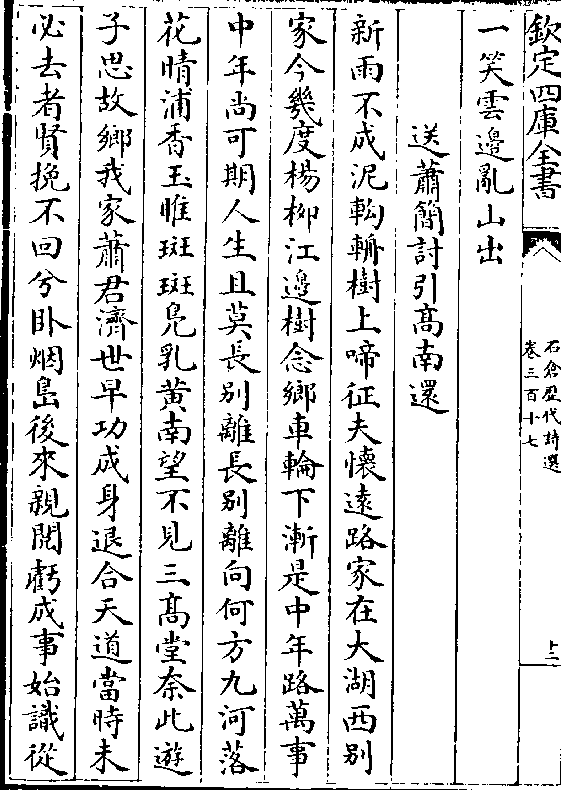 欽定四庫全書
石倉歷代詩選
卷三百十七
十二
一笑雲邊亂山出
送蕭簡討引髙南還
新雨不成泥軥輈樹上啼征夫懷遠路家在大湖西别
家今幾度楊栁江邉樹念鄉車輪下漸是中年路萬事
中年尚可期人生且莫長别離長别離向何方九河落
花晴浦香玉雎斑斑凫乳黄南望不見三髙堂奈此遊
子思故鄉我家蕭君濟世早功成身退合天道當時未
必去者賢挽不回兮卧烟島後來親閱虧成事始識從